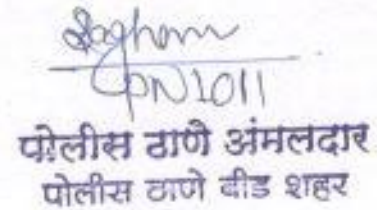 PN1011
पोलीस ठाणे अंमलदार
पोलीस ठाणे बीड शहर